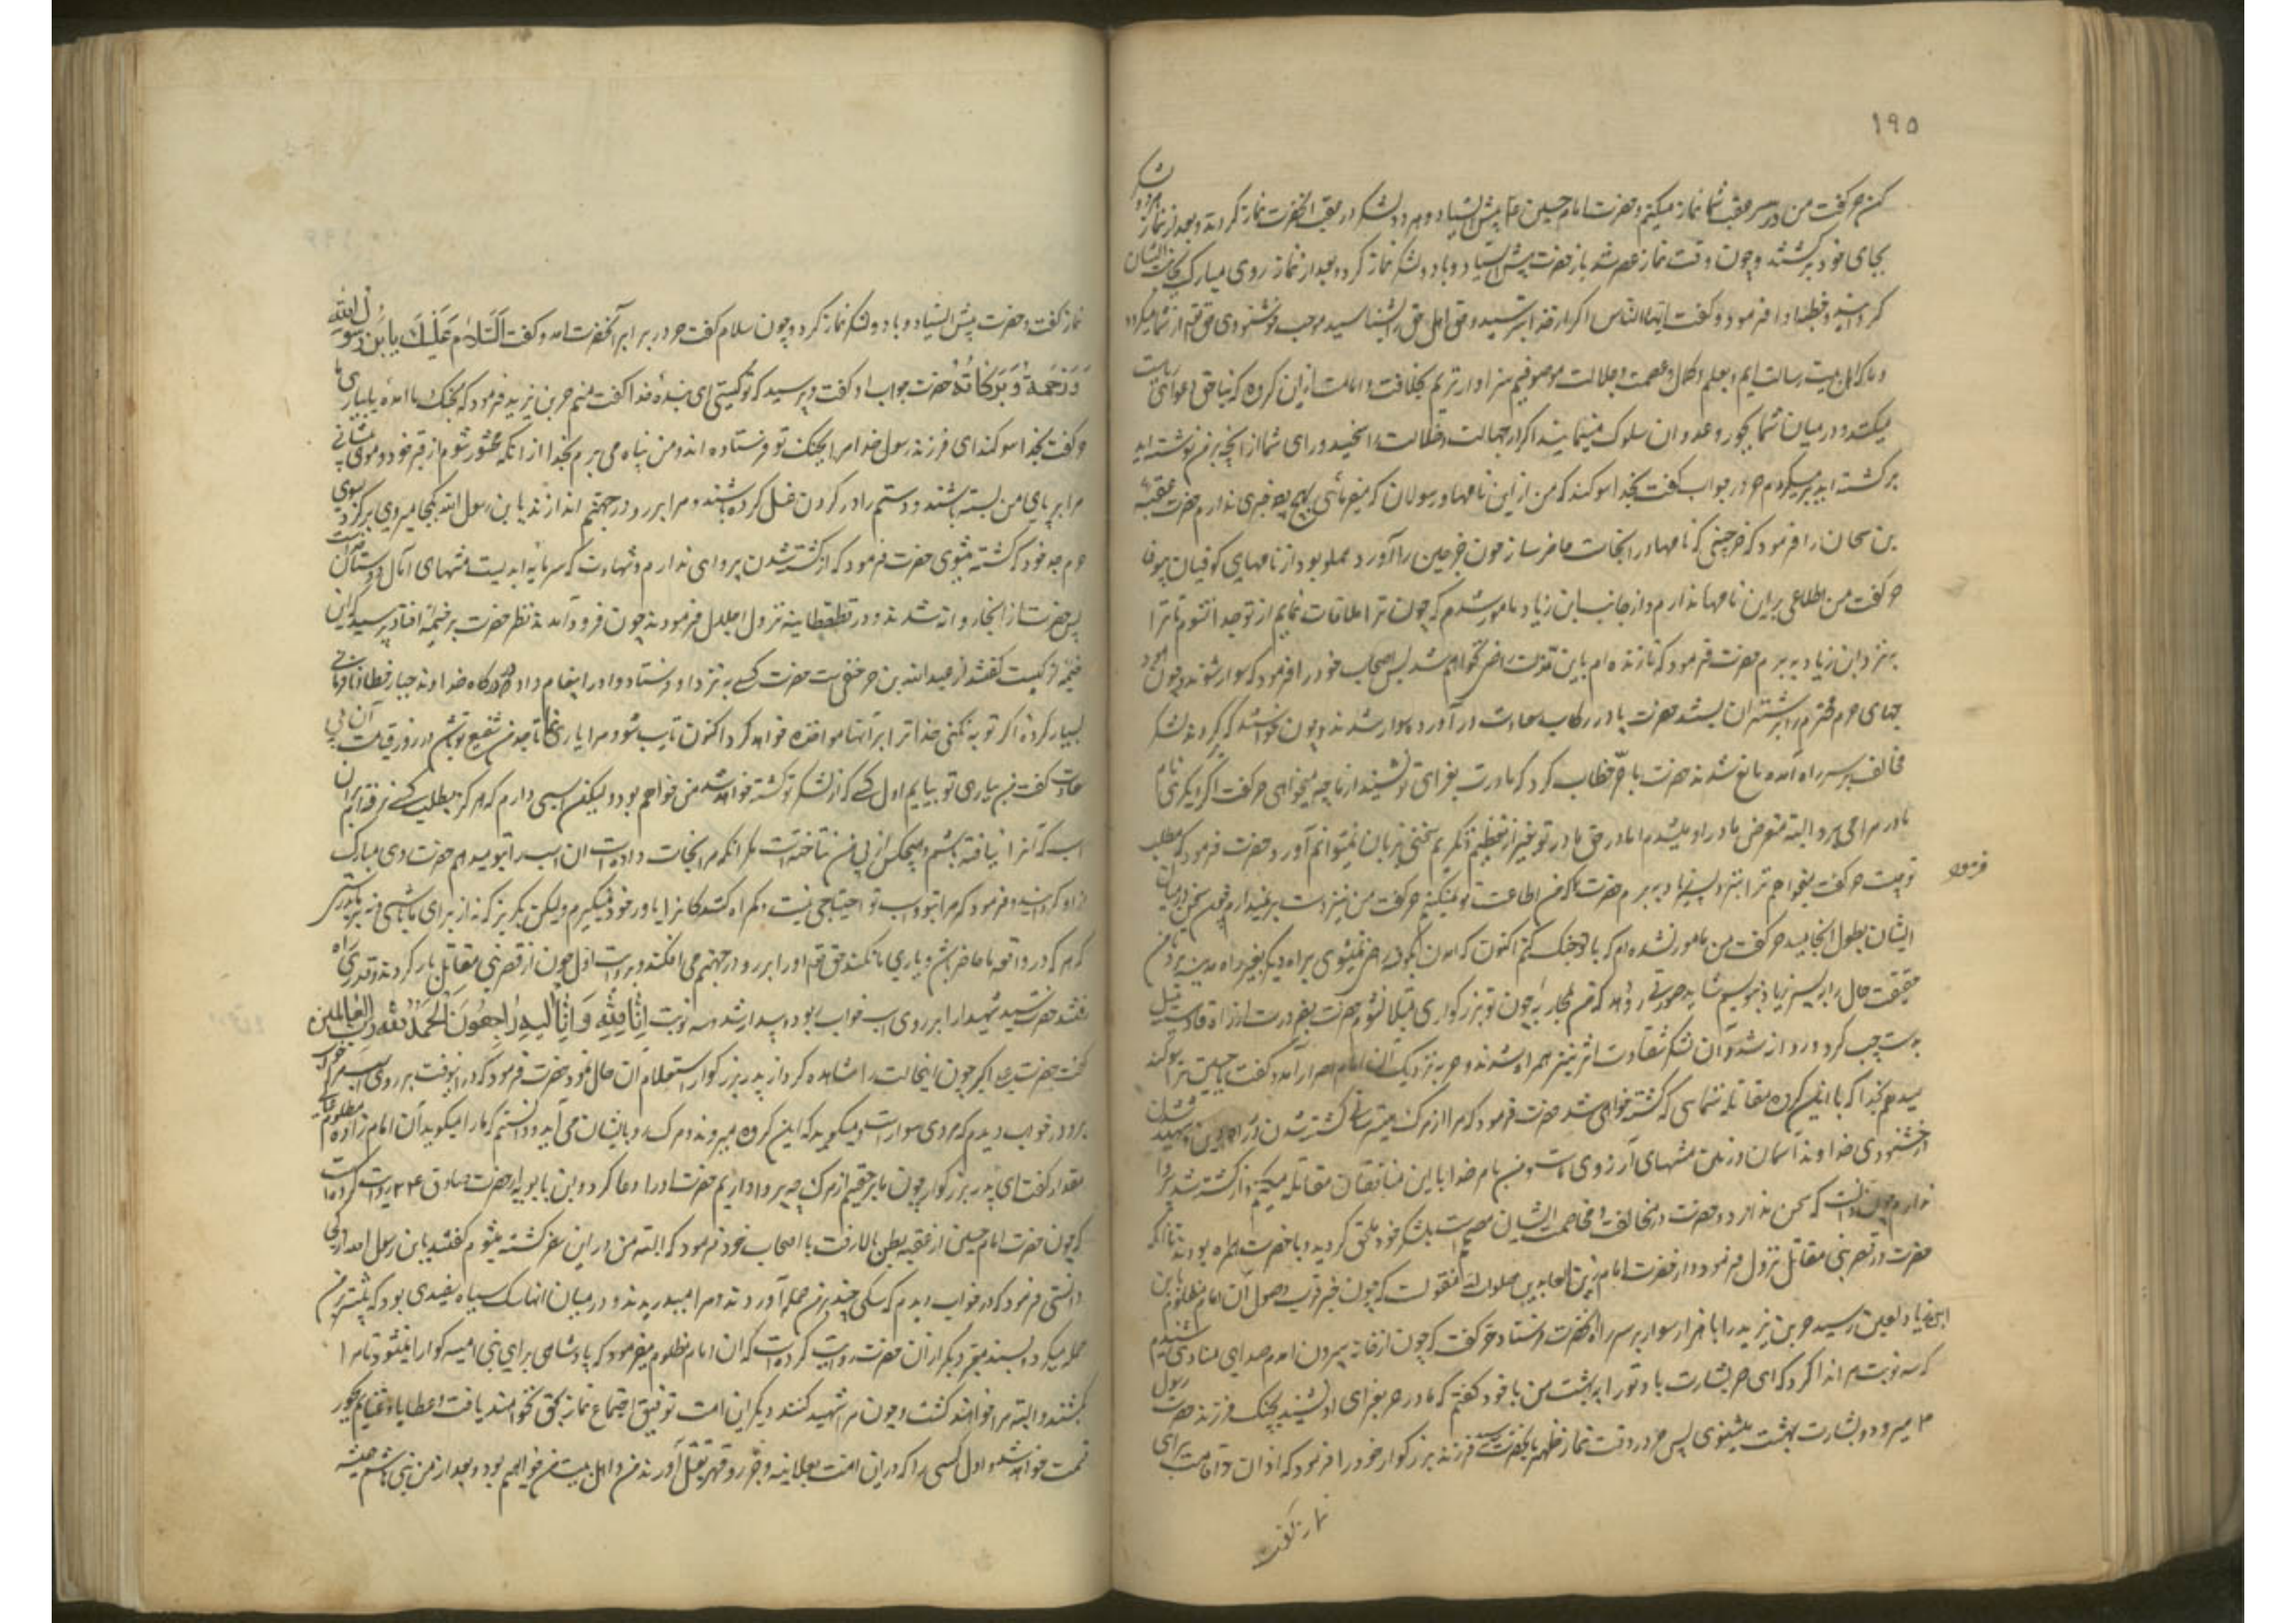 ۱۹۵
کن حر گفت من در عقب شما نماز میکنم و حضرت امام حسین ع پیش ایستاد و هر دو لشکر در عقب آنحضرت نماز کردند و بعد از نماز هر دو لشکر
بجای خود برگشتند و چون وقت نماز عصر شد باز حضرت پیش ایستاد و با دو لشکر نماز کرد و بعد از نماز روی مبارک بجانب ایشان
گردانید و خطبه ادا فرمود و گفت ایها الناس اگر از خدا بترسید و حق اهل حق را بشناسید موجب خوشنودی حق تعالی از شما میگردد
و ما که اهل بیت رسالت ایم و بعلم و کمال و عصمت و جلالت موصوفیم سزاوارتریم بخلافت و امامت از این گروه که بناحق دعوای ریاست
میکنند و در میان شما بجور و عدوان سلوک مینمایند اگر از جهالت و ضلالت راسخید و رای شما از آنچه بمن نوشته اید
برگشته اید برمیگردم حر در جواب گفت بخدا سوگند که من از این نامها و رسولان که میفرمائی بهیچ وجه خبری ندارم حضرت عقبة
بن سمعان را فرمود که خرجینی که نامها در آنجاست حاضر ساز چون خرجین را آورد مملو بود از نامهای کوفیان بیوفا
حر گفت من اطلاعی بر این نامها ندارم و از جانب ابن زیاد مامور شدم که چون ترا ملاقات نمایم از تو جدا نشوم تا ترا
بنزد ابن زیاد ببرم حضرت فرمود که تا زنده ام باین مذلت راضی نخواهم شد پس اصحاب خود را فرمود که سوار شوند و چون
حرم محترم را بر شتران بستند حضرت پا در رکاب سعادت در آورد و سوار شدند و چون خواستند که برگردند لشکر
مخالف بر سر راه آمده مانع شدند حضرت با حر خطاب کرد که مادرت بعزای تو نشیند از ما چه میخواهی حر گفت اگر دیگری نام
مادر مرا می برد البته متعرض مادر او میشدم اما در حق مادر تو بغیر از تعظیم و تکریم سخنی بر زبان نمیتوانم آورد حضرت فرمود که مطلب
تو چیست حر گفت میخواهم ترا بنزد پسر زیاد ببرم حضرت فرمود که من اطاعت تو نمیکنم حر گفت من نیز دست بر نمیدارم و چون سخن در میان
ایشان بطول انجامید حر گفت من مامور نشده ام که با تو جنگ کنم اکنون که آمدن بکوفه راضی نمیشوی براه دیگر بغیر راه مدینه برو تا من
حقیقت حال را به پسر زیاد بنویسم شاید صورتی رو دهد که من بمحاربه چون تو بزرگواری مبتلا نشوم حضرت بضرورت از راه قادسیه میل
بدست چپ کرد و روانه شد و آن لشکر شقاوت اثر نیز همراه شدند و حر بنزدیک آن امام احرار آمد و گفت یا حسین ترا سوگند
میدهم بخدا که با این گروه مقاتله ننمائی که کشته خواهی شد حضرت فرمود که مرا از مرگ میترسانی کشته شدن در راه دین و شهید شدن
در خشنودی خداوند آسمان و زمین منتهای آرزوی ماست و من بنام خدا با این منافقان مقاتله میکنم و از کشته شدن پروا
ندارم چون دانست که سخن ندارد در حضرت و مخالفت و مخاصمت ایشان مصر است بلشکر خود ملحق گردید و با حضرت همراه بودند تا آنکه
حضرت در قصر بنی مقاتل نزول فرمود و از حضرت امام زین العابدین صلوات الله منقولست که چون خبر قرب وصول آن امام مظلوم باین
ابن زیاد لعین رسید حر بن یزید را با هزار سوار بر سر راه آنحضرت فرستاد حر گفت که چون از خانه بیرون آمدم صدای منادی شنیدم
که سه نوبت مرا ندا کرد که ای حر بشارت باد تو را به بهشت من با خود گفتم که مادر حر بعزای او نشیند بجنگ فرزند حضرت رسول
م میرود و بشارت بهشت میشنوی پس حر در وقت نماز ظهر بآنحضرت رسید فرزند بزرگوار خود را فرمود که اذان و اقامت برای
نماز گفت
فرمود
نماز گفت و حضرت پیش ایستاد و با دو لشکر نماز کرد و چون سلام گفت حر در برابر آنحضرت آمد و گفت اَلسَّلامُ عَلَیْکَ یا بْنَ رَسُولِ اللّٰهِ
وَ رَحْمَةُ وَ بَرَکاتُهُ حضرت جواب او گفت و پرسید که تو کیستی ای بنده خدا گفت منم حر بن یزید فرمود که بجنگ ما آمده یا بیاری ما
حر گفت بخدا سوگند ای فرزند رسول خدا مرا بجنگ تو فرستاده اند و من پناه می برم بخدا از آنکه محشور شوم از قبر خود و موی پیشانی
مرا بر پای من بسته باشند و دستم را در گردن غل کرده باشند و مرا بر رو در جهنم اندازند یا بن رسول الله بکجا میروی برگرد بسوی
حرم جد خود که کشته میشوی حضرت فرمود که از کشته شدن پروای ندارم و شهادت که سرمایه ابدیست منتهای آمال دوستان
پس حضرت از آنجا روانه شدند و در قطقطانیه نزول اجلال فرمودند چون فرود آمدند نظر حضرت بر خیمه افتاد پرسید که این
خیمه از کیست گفتند از عبدالله بن حر حنفی است حضرت کسی به نزد او فرستاد و او را پیغام داد که در درگاه خداوند جبار خطا و نافرمانی
بسیار کرده اگر توبه نکنی خدا ترا بر آنها مواخذه خواهد کرد اکنون تایب شو و مرا یاری نما تا جد من شفیع تو باشد در روز قیامت آن بی
سعادت گفت من بیاری تو بیایم اول کسی که از لشکر تو کشته خواهد شد من خواهم بود ولیکن اسبی دارم که هرگز بطلب کسی نرفته ام بر آن
اسب که آنرا نیافته باشم و هیچکس از پی من نتاخته است مگر آنکه مرا نجات داده است آن اسب را بتو میدهم حضرت روی مبارک
از او گردانید و فرمود که مرا بتو و اسب تو احتیاجی نیست و گمراه کنندگانرا یاور خود نمیگیرم ولیکن بگریز که نه از برای ما باشی و نه بر ما
که هر که در واقعه ما حاضر باشد و یاری ما نکند حق تعالی او را بر رو در جهنم می افکند و بروایت اول چون از قصر بنی مقاتل بار کردند و قدری راه
رفتند حضرت سید شهدا را بر روی اسب خواب ربود و بیدار شد و سه نوبت اِنّا لِلّٰهِ وَ اِنّا اِلَیْهِ راجِعُونَ اَلْحَمْدُ لِلّٰهِ رَبِّ الْعالَمِینَ
گفت حضرت علی اکبر چون اینحالت را مشاهده کرد از پدر بزرگوار استعلام آن حال نمود حضرت فرمود که در اینوقت بر روی اسب مرا خواب
برد و در خواب دیدم که مردی سوار است و میگوید که این گروه میروند و مرگ رو بایشان می آید و دانستم که ما را میگوید آن امام زاده مظلوم
مقدار گفت ای پدر بزرگوار چون ما بر حقیم از مرگ چه پروا داریم حضرت او را دعا کرد و ابن بابویه از حضرت صادق ع روایت کرده است
که چون حضرت امام حسین از عقبه بطن بالا رفت با اصحاب خود فرمود که البته من در این سفر کشته میشوم گفتند یا بن رسول الله از کجا
دانستی فرمود که در خواب دیدم که سگی چند بر من حمله آوردند و مرا میدریدند و در میان آنها سگ سیاه سفیدی بود که بیشتر بر من
حمله میکرد و بسند معتبر دیگر از آن حضرت روایت کرده است که آن امام مظلوم میفرمود که پادشاهی برای بنی امیه گوارا نمیشود تا مرا
بکشند و البته مرا خواهند کشت و چون مرا شهید کنند دیگر این امت توفیق اجتماع نماز بحق نخواهند یافت و عطایا و غنایم بجور
قسمت خواهد شد و اول کسی را که در این امت بعلانیه و جور و قهر بقتل آورند من و اهل بیت من خواهیم بود و بعد از من بنی هاشم همیشه